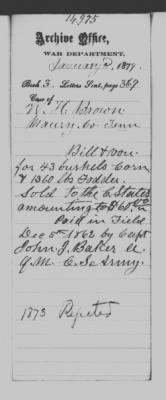 14975
Archive Office,
WAR DEPARTMENT,
January 2, 1879.
Book 3. Letters Sent, page 369.
Case of
W. H. Brown
Maury. Co Tenn
Bill & Vou.
for 43 bushels Corn
& 1360 lbs Fodder.
Sold to the C. States
amounting to $68.
Paid in Field
Dec 5th 1862 by Capt
John J. Baker A.
Q.M. C.S. Army.
1873 Rejected